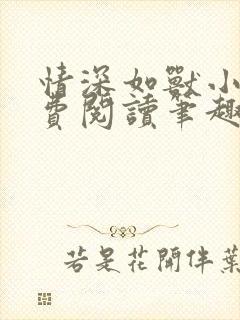 情深如獸小
費閱讀筆趣
若是花開伴葉